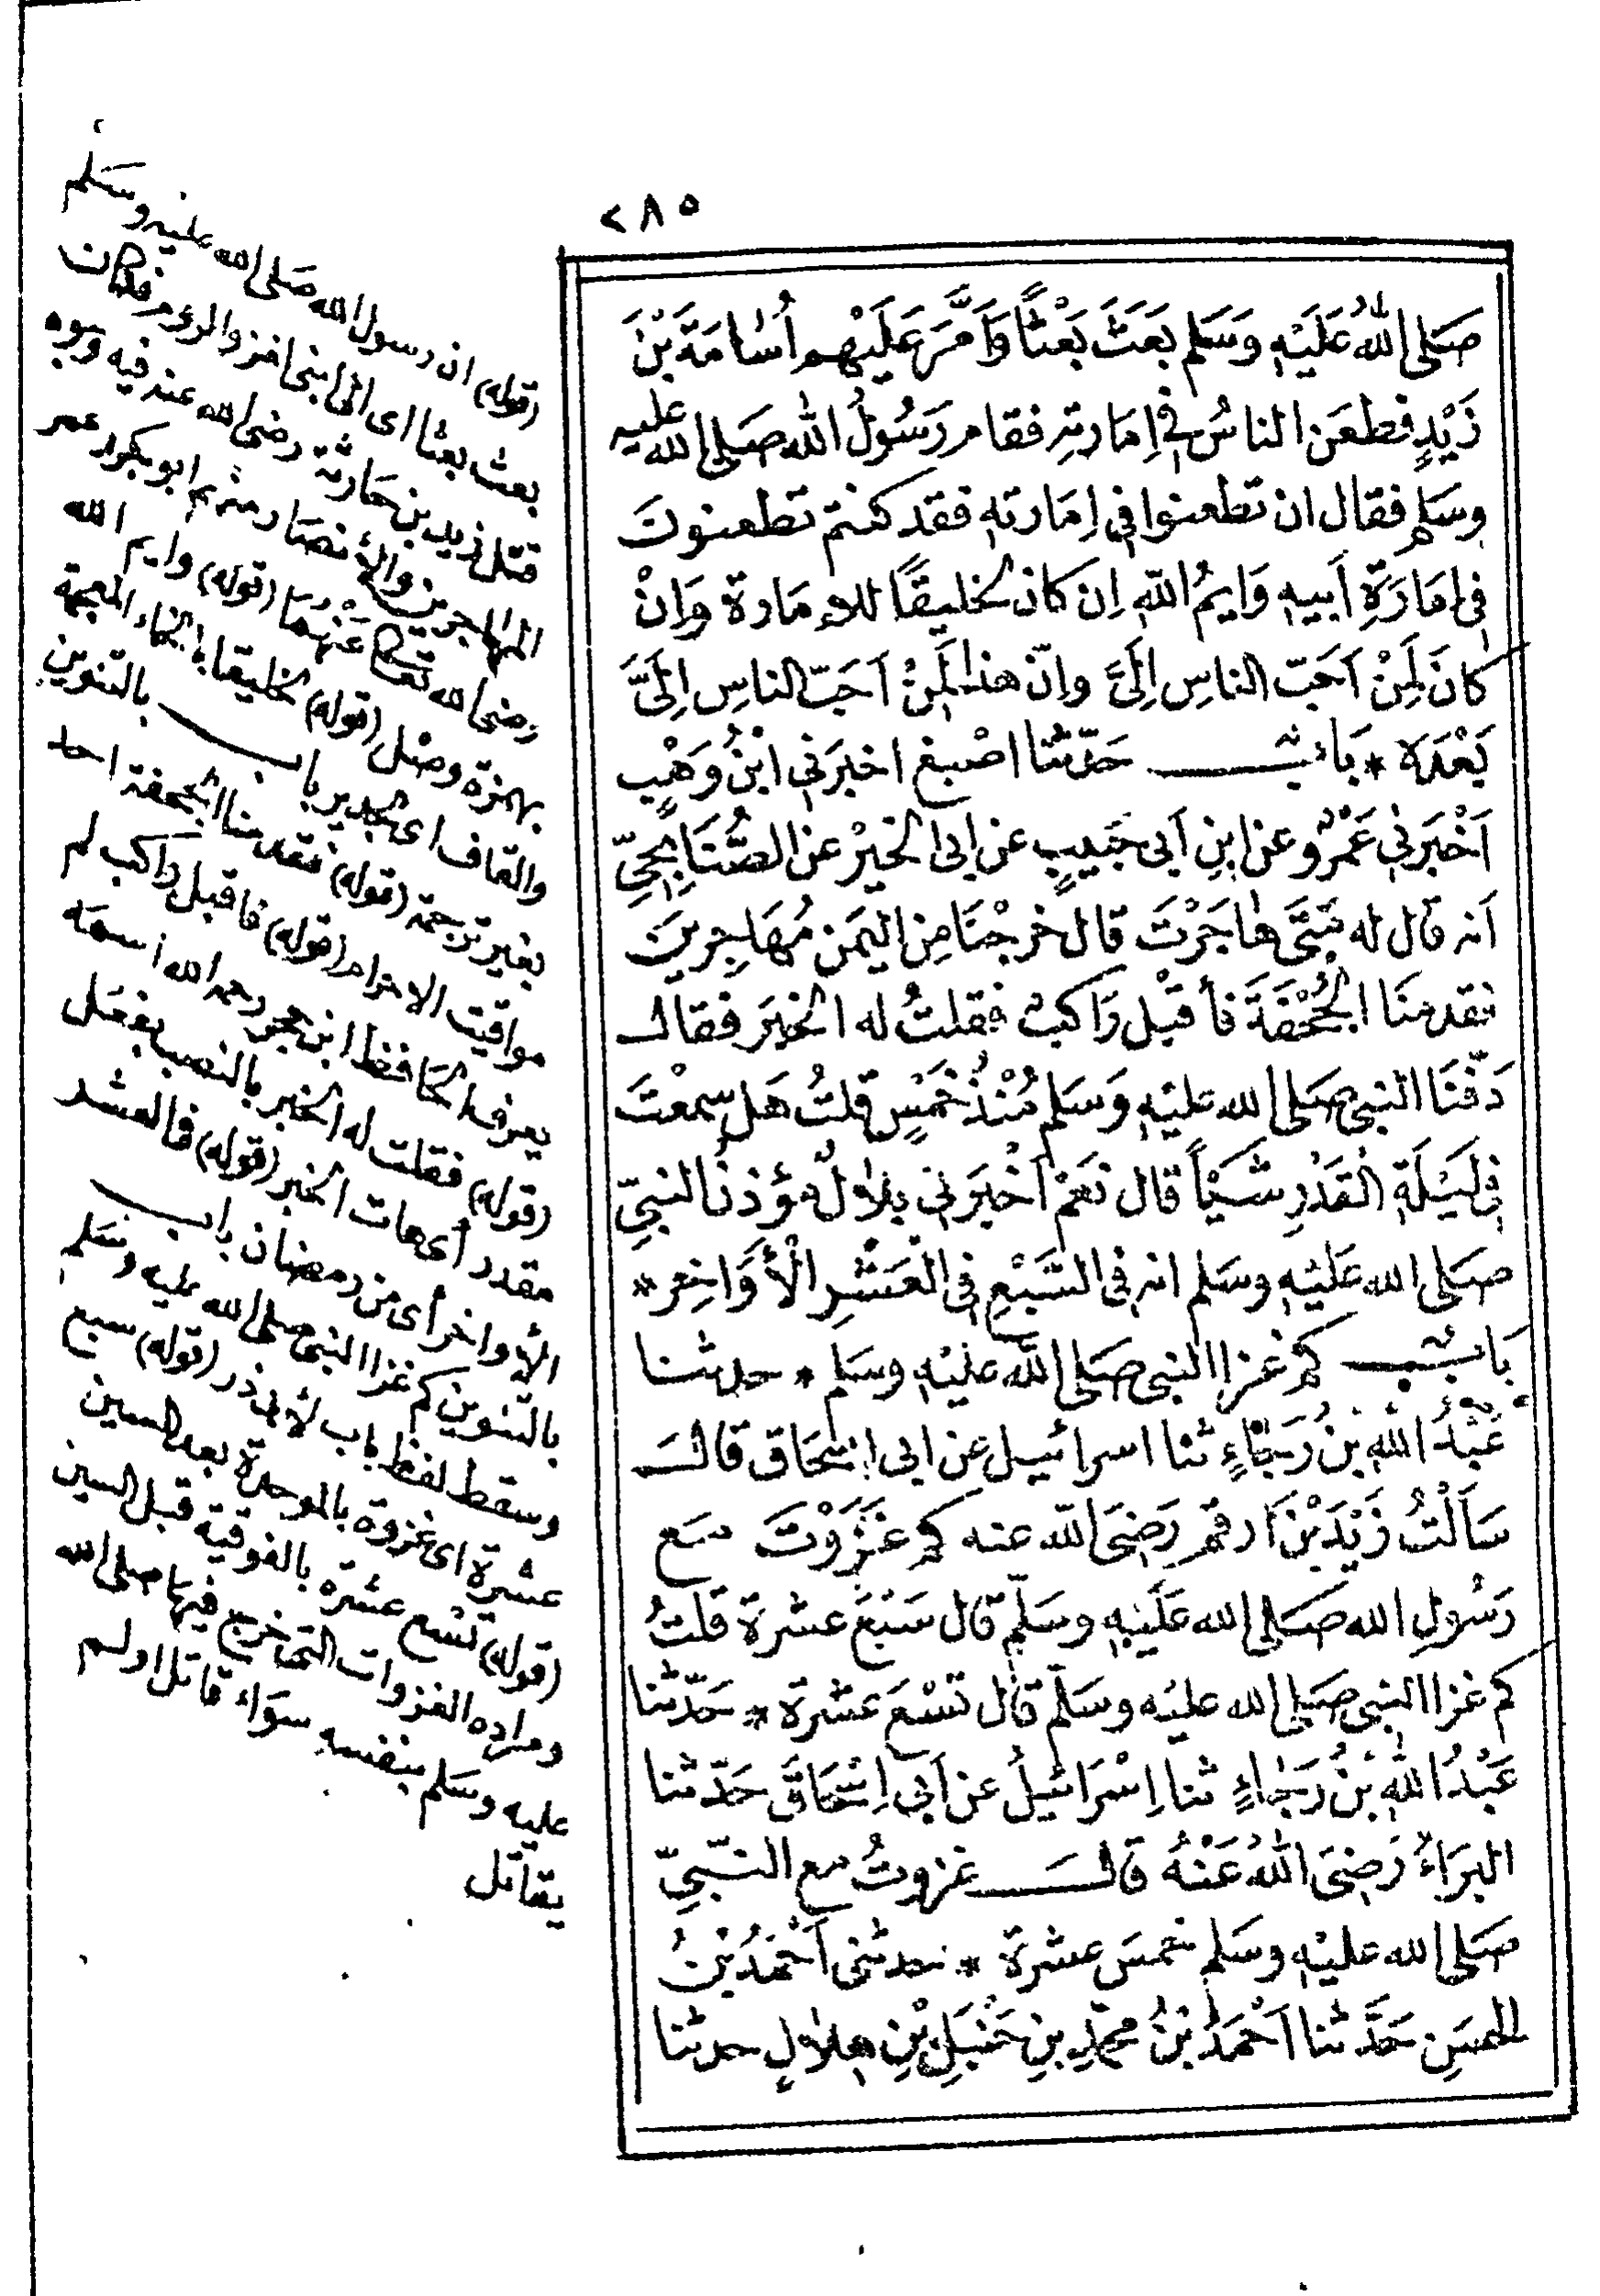 ٢٨٥
صَلى اللهُ عَلَيْهِ وَسَلم بَعَثَ بَعْثًا وَاَمَّرَ عَلَيْهِم اُسَامَةَ بْنَ
زَيْدٍ فطعَن الناسُ فى اِمَارتِهِ فقام رَسُولُ الله صَلى الله عليه
وسَلم فقال ان تطعنوا فِى اِمَارتهِ فقد كنتم تطعنونَ
فِى اِمَارَةِ اَبيهِ وَايمُ اللهِ اِن كانَ لخليقًا للاِمَارة وَاِنْ
كانَ لَمِنْ اَحَبّ الناسِ اِلَىَّ واِنّ هذا لَمِنْ اَحَبّ الناسِ اِلَىَّ
بَعْدَهُ * بَابٌ حَدّثنا اصْبغ اخبَرَنى ابْنُ وَهْبٍ
اَخْبَرَنِى عَمْرٌو عن ابنِ اَبى حَبيبٍ عن ابى الخيْر عن الصُّنَابِحِىِّ
اَنه قال له مَتَى هَاجَرْتَ قال خرجْنَا مِن اليَمَن مُهَاجِرينَ
فقدمنَا الجُحْفَةَ فأقبَل رَاكبٌ فقلتُ له الخبَر فقال
دَفنَّا النبى صَلى الله عليْهِ وَسَلم مُنْذُ خَمْسٍ قلتُ هَل سمعْتَ
فى لَيْلَةِ القَدْرِ شَيْأً قال نَعَمْ اَخْبَرَنى بلالٌ مؤذنُ النبىِّ
صَلى الله عَليْهِ وسَلم انه فى السَّبْعِ فى العَشْرِ الْأوَاخِر *
بَابٌ كم غزا النبى صَلى الله عليْهِ وسَلم * حدثنا
عَبْدُ اللهِ بنُ رَجَاءٍ ثنا اسرائيل عن ابى اِسْحَاق قال
سَاَلْتُ زَيْدَ بْنَ اَرقم رَضِىَ الله عنه كم غزَوْتَ مَع
رَسُولِ الله صَلى الله عَليْهِ وسَلّم قال سَبْعَ عشرة قلتُ
كم غزا النبى صَلى الله عليْه وسَلّم قال تسْعَ عَشْرة * حَدّثنا
عَبْدُ اللهِ بْنُ رَجَاءٍ ثنا اِسْرَائيلُ عن اَبى اِسْحَاقَ حَدّثنا
البرَاءُ رَضِىَ اللهُ عَنْهُ قال غزوتُ مع النبىِّ
صَلى الله عليْهِ وسَلم خمسَ عشرة * حدثنى اَحْمَدُ بْنُ
الحسَنِ حَدَّثنا اَحْمَدُ بْنُ محمّدِ بنِ حَنْبَلِ بْنِ هِلالٍ حدثنا
(قوله) ان رسول الله صَلى الله عليْه وسَلم
بعث بعثا اى الى ابنى لغزو الروم مكان
قتل زيد بن حَارثة رضى الله عنه فيه وجوه
المهاجرين والأنصَار منهم ابو بكر وعمر
رضى الله تعالى عَنْهُمَا (قوله) وايم الله
بهمزة وصْل (قوله) لخليقا بالخاء المعجمة
والقاف اى لجدير باب بالتنوين
بغير ترجمة (قوله) فقدمنا الجحفة احد
مواقيت الاحرام (قوله) فاقبل راكب لم
يعرف الحَافظ ابن حجر رحمه الله اسمَه
(قوله) فقلت له الخبر بالنصب بفعل
مقدر أى هات الخبر (قوله) فى العشر
الأواخر أى من رمضان باب
بالتنوين كم غزا النبى صلى الله عليه وسَلم
وسقط لفظ باب لأبى ذر (قوله) سبع
عشرة اى غزوة بالموحدة بعد السين
(قوله) تسْع عشرَة بالفوقية قبل السين
ومراده الغزوات التى خرج فيها صلى الله
عليه وسَلم بنفسه سَوَاء قاتل او لم
يقاتل